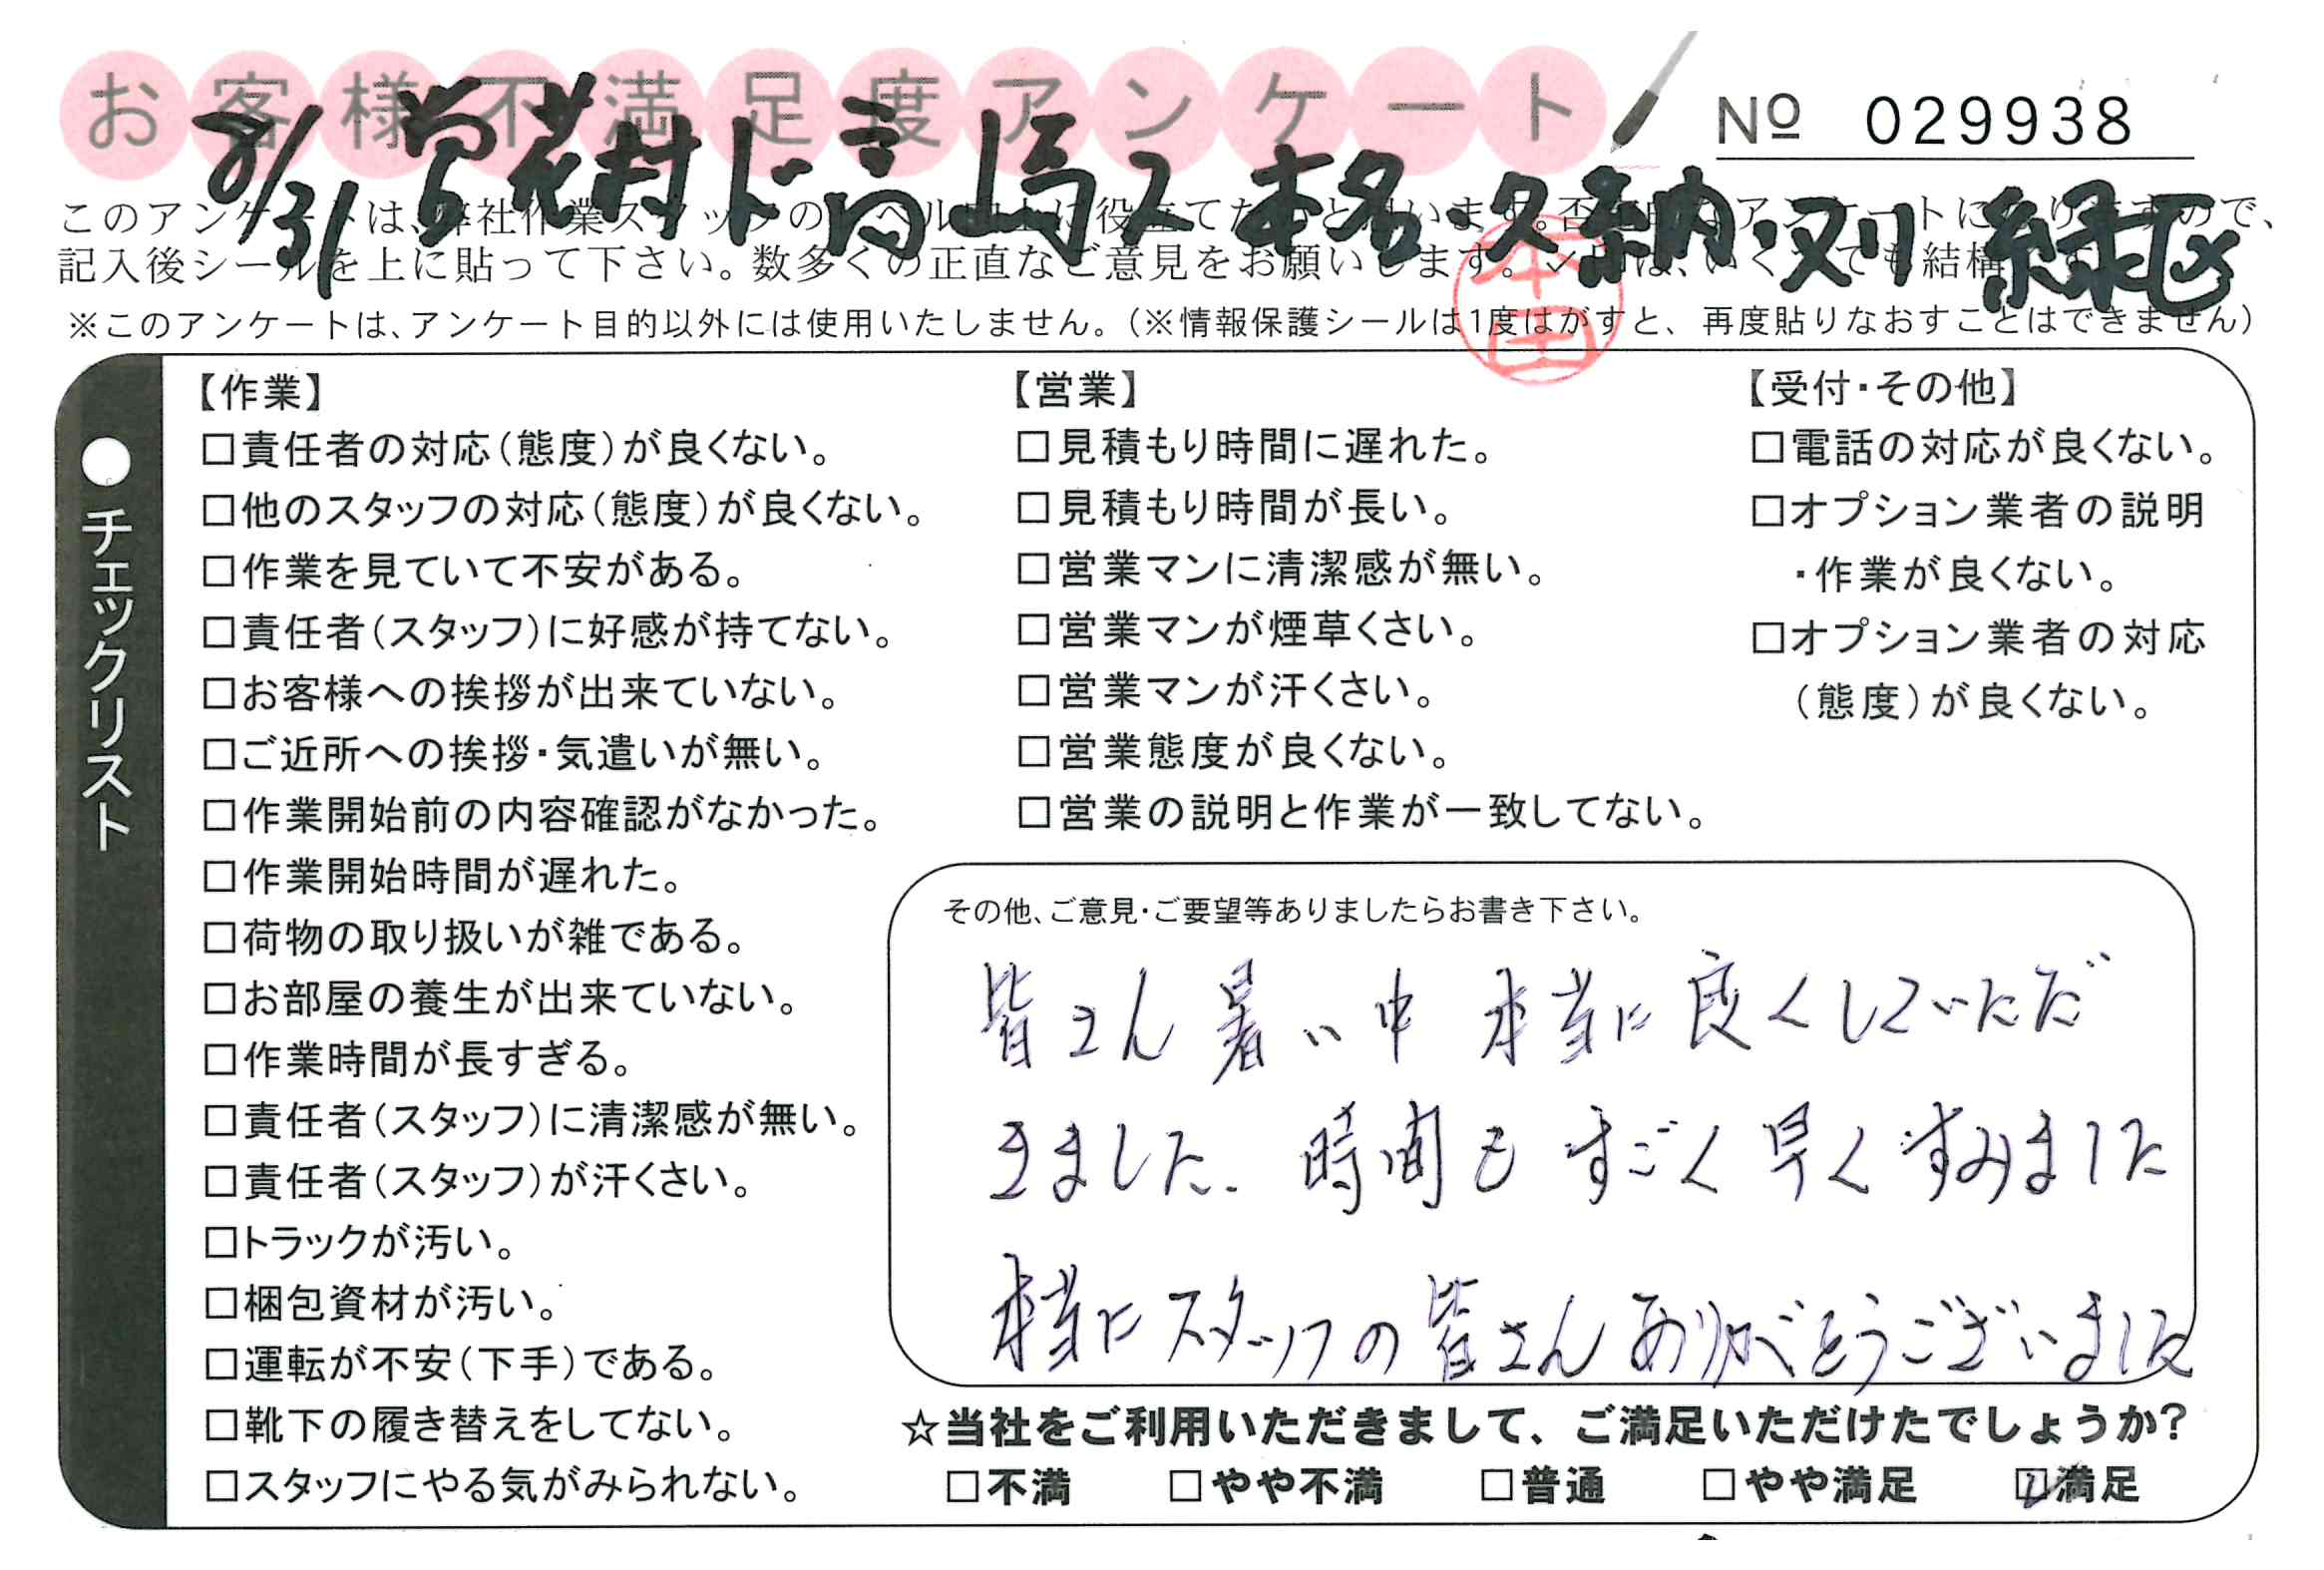 お客様不満足度アンケート
№ 029938
8/31 営 花村 ド 高馬 ス 本名・久納・刈 緑区
このアンケートは、弊社作業スタッフのレベル向上に役立てたいと思います。否定的なアンケートになりますので、
記入後シールを上に貼って下さい。数多くの正直なご意見をお願いします。✓印は、いくつでも結構です。
本田
※このアンケートは、アンケート目的以外には使用いたしません。（※情報保護シールは1度はがすと、再度貼りなおすことはできません）
●チェックリスト
【作業】
□責任者の対応（態度）が良くない。
□他のスタッフの対応（態度）が良くない。
□作業を見ていて不安がある。
□責任者（スタッフ）に好感が持てない。
□お客様への挨拶が出来ていない。
□ご近所への挨拶・気遣いが無い。
□作業開始前の内容確認がなかった。
□作業開始時間が遅れた。
□荷物の取り扱いが雑である。
□お部屋の養生が出来ていない。
□作業時間が長すぎる。
□責任者（スタッフ）に清潔感が無い。
□責任者（スタッフ）が汗くさい。
□トラックが汚い。
□梱包資材が汚い。
□運転が不安（下手）である。
□靴下の履き替えをしてない。
□スタッフにやる気がみられない。
【営業】
□見積もり時間に遅れた。
□見積もり時間が長い。
□営業マンに清潔感が無い。
□営業マンが煙草くさい。
□営業マンが汗くさい。
□営業態度が良くない。
□営業の説明と作業が一致してない。
【受付・その他】
□電話の対応が良くない。
□オプション業者の説明
・作業が良くない。
□オプション業者の対応
（態度）が良くない。
その他、ご意見・ご要望等ありましたらお書き下さい。
皆さん 暑い中 本当に良くしていただ
きました. 時間も すごく早く すみました
本当に スタッフの皆さん ありがとうございました
☆当社をご利用いただきまして、ご満足いただけたでしょうか？
□不満 □やや不満 □普通 □やや満足 ☑満足